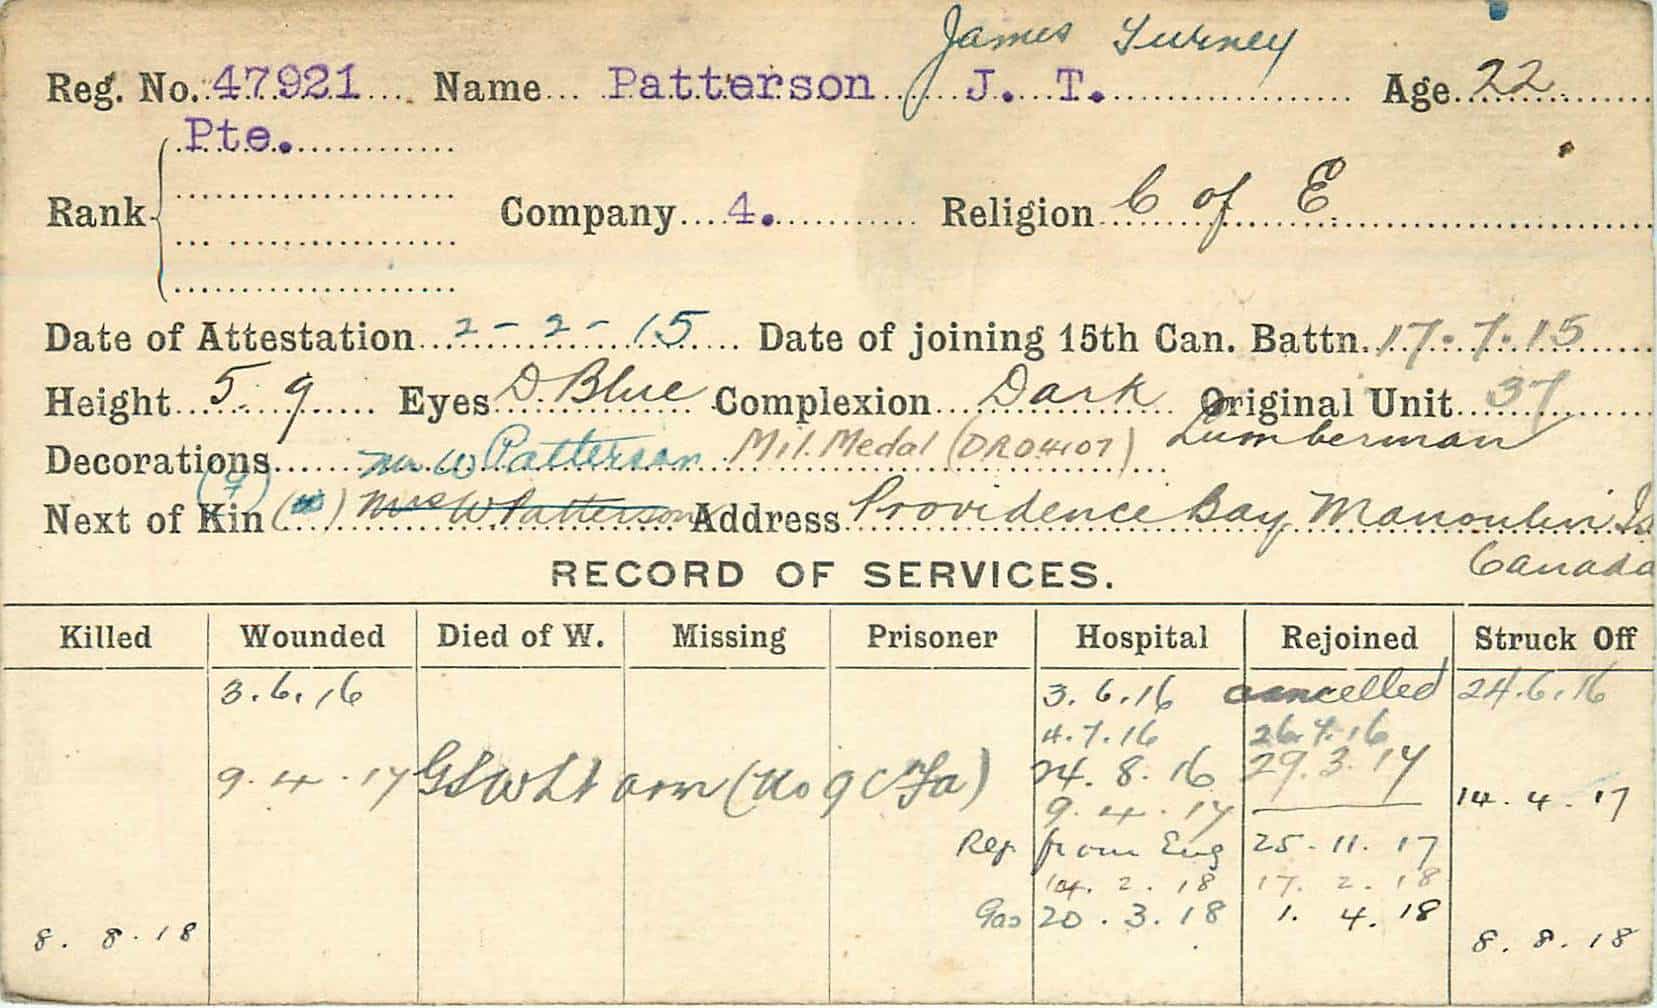 James Turney
Reg. No. 47921 Name Patterson J. T. Age 22
Pte.
Rank Company 4. Religion C of E.
Date of Attestation 2-2-15 Date of joining 15th Can. Battn. 17.7.15
Height 5. 9 Eyes D. Blue Complexion Dark Original Unit 37
Lumberman
Decorations Mr W Patterson Mil. Medal (DRO4107)
(F)
Next of Kin ( ) Mrs W Patterson Address Providence Bay Manoulin Is
Canada
RECORD OF SERVICES.
Killed Wounded Died of W. Missing Prisoner Hospital Rejoined Struck Off
3.6.16 3.6.16 cancelled 24.6.16
4.7.16 26.7.16
9.4.17 GSW Lt arm (No 9 C Fa) 24.8.16 29.3.17 14.4.17
9.4.17
Rep from Eng 25-11.17
14.2.18 17.2.18
Gas 20.3.18 1.4.18
8.8.18 8.8.18